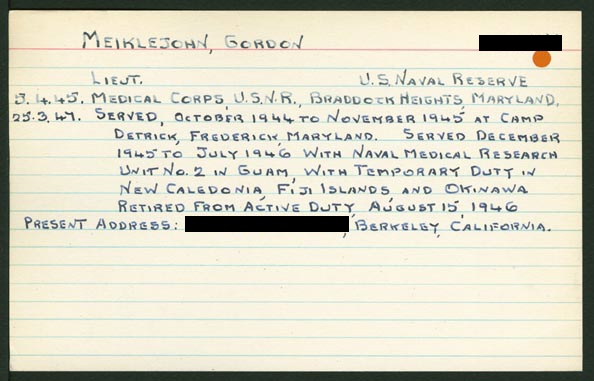 MEIKLEJOHN, GORDON
LIEUT. U.S. NAVAL RESERVE
3.4.45. MEDICAL CORPS, U.S.N.R., BRADDOCK HEIGHTS, MARYLAND,
25.3.47. SERVED, OCTOBER 1944 TO NOVEMBER 1945 AT CAMP
DETRICK, FREDERICK, MARYLAND. SERVED DECEMBER
1945 TO JULY 1946 WITH NAVAL MEDICAL RESEARCH
UNIT NO. 2 IN GUAM, WITH TEMPORARY DUTY IN
NEW CALEDONIA, FIJI ISLANDS AND OKINAWA
RETIRED FROM ACTIVE DUTY, AUGUST 15, 1946
PRESENT ADDRESS: , BERKELEY, CALIFORNIA.